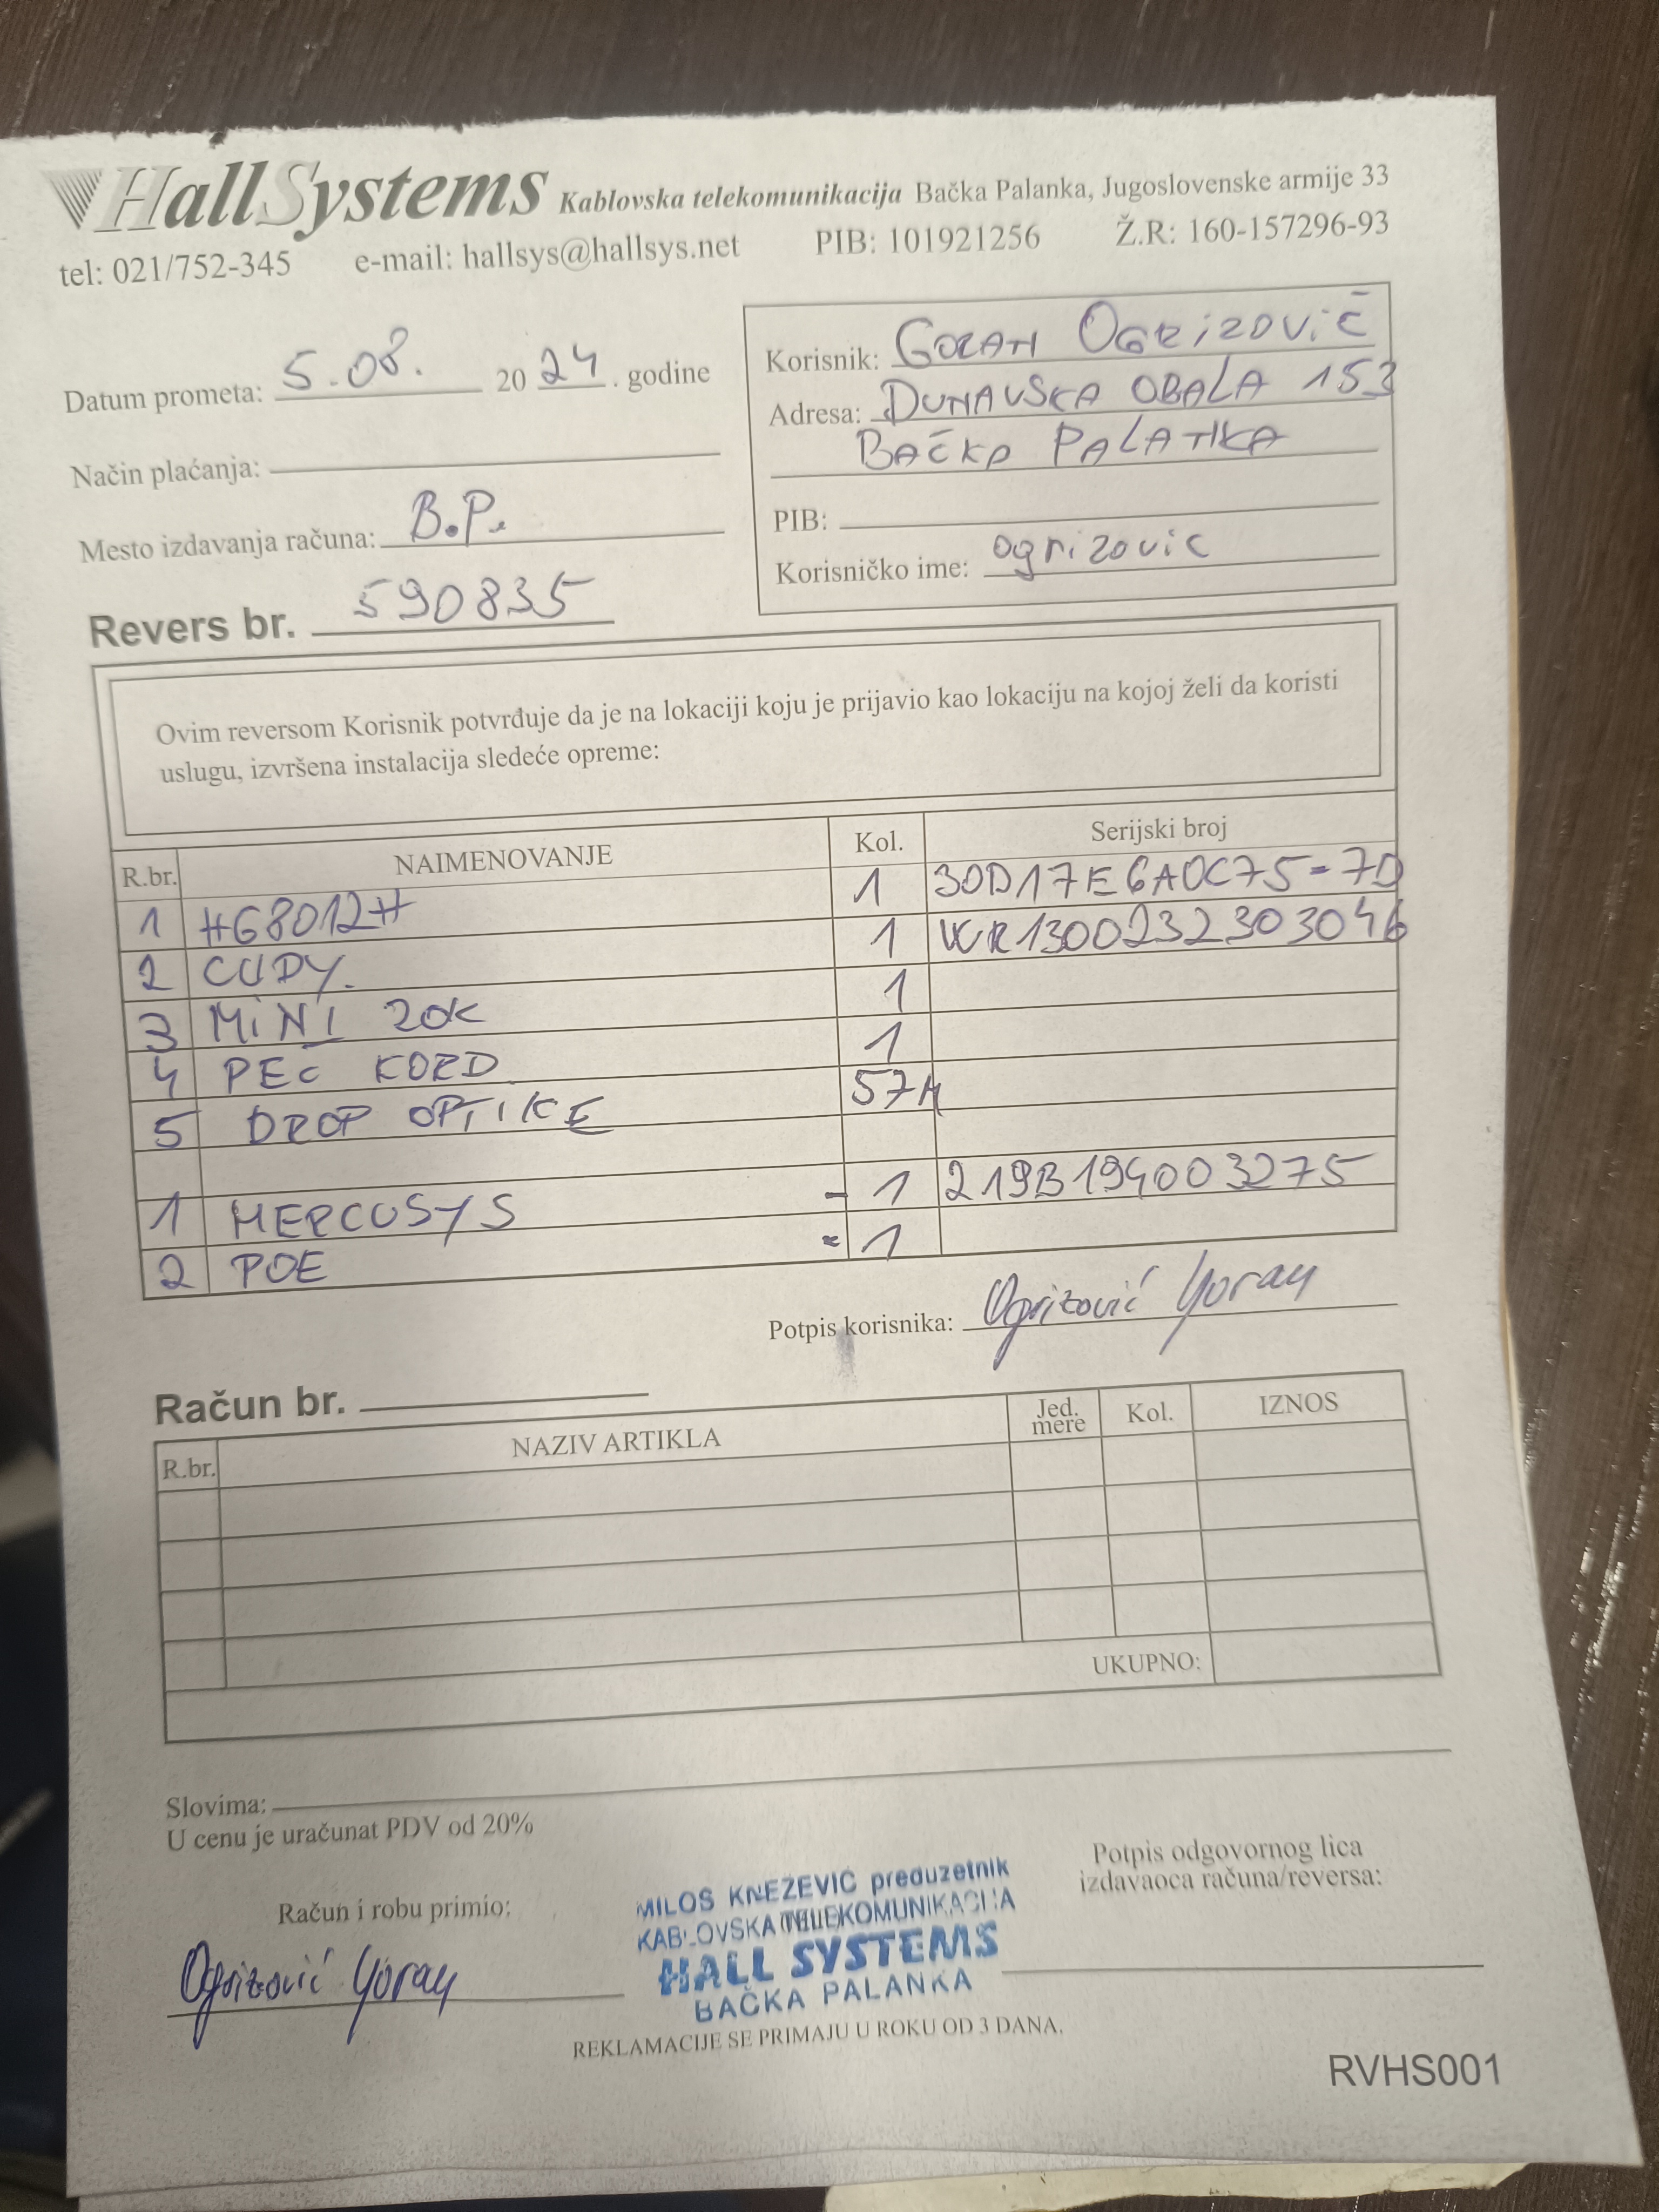 HallSystems Kablovska telekomunikacija Bačka Palanka, Jugoslovenske armije 33
tel: 021/752-345 e-mail: hallsys@hallsys.net PIB: 101921256 Ž.R: 160-157296-93
Datum prometa: 5.08. 2024. godine
Način plaćanja:
Mesto izdavanja računa: B.P.
Revers br. 590835
Korisnik: GORAN OGRIZOVIĆ
Adresa: DUNAVSKA OBALA 153
BAČKA PALANKA
PIB:
Korisničko ime: ogrizovic
Ovim reversom Korisnik potvrđuje da je na lokaciji koju je prijavio kao lokaciju na kojoj želi da koristi
uslugu, izvršena instalacija sledeće opreme:
R.br. NAIMENOVANJE Kol. Serijski broj
1 HG8012H 1 30D17E6A0C75-7D
2 CUDY. 1 WR1300232303046
3 MINI ZOK 1
4 PEČ KORD 1
5 DROP OPTIKE 57M
1 MERCUSYS - 1 219B194003275
2 POE - 1
Potpis korisnika: Ogrizović Goran
Račun br.
R.br. NAZIV ARTIKLA Jed. mere Kol. IZNOS
UKUPNO:
Slovima:
U cenu je uračunat PDV od 20%
Račun i robu primio:
Ogrizović Goran
MILOŠ KNEŽEVIĆ preduzetnik
KABLOVSKA TELEKOMUNIKACIJA
HALL SYSTEMS
BAČKA PALANKA
Potpis odgovornog lica
izdavaoca računa/reversa:
REKLAMACIJE SE PRIMAJU U ROKU OD 3 DANA.
RVHS001